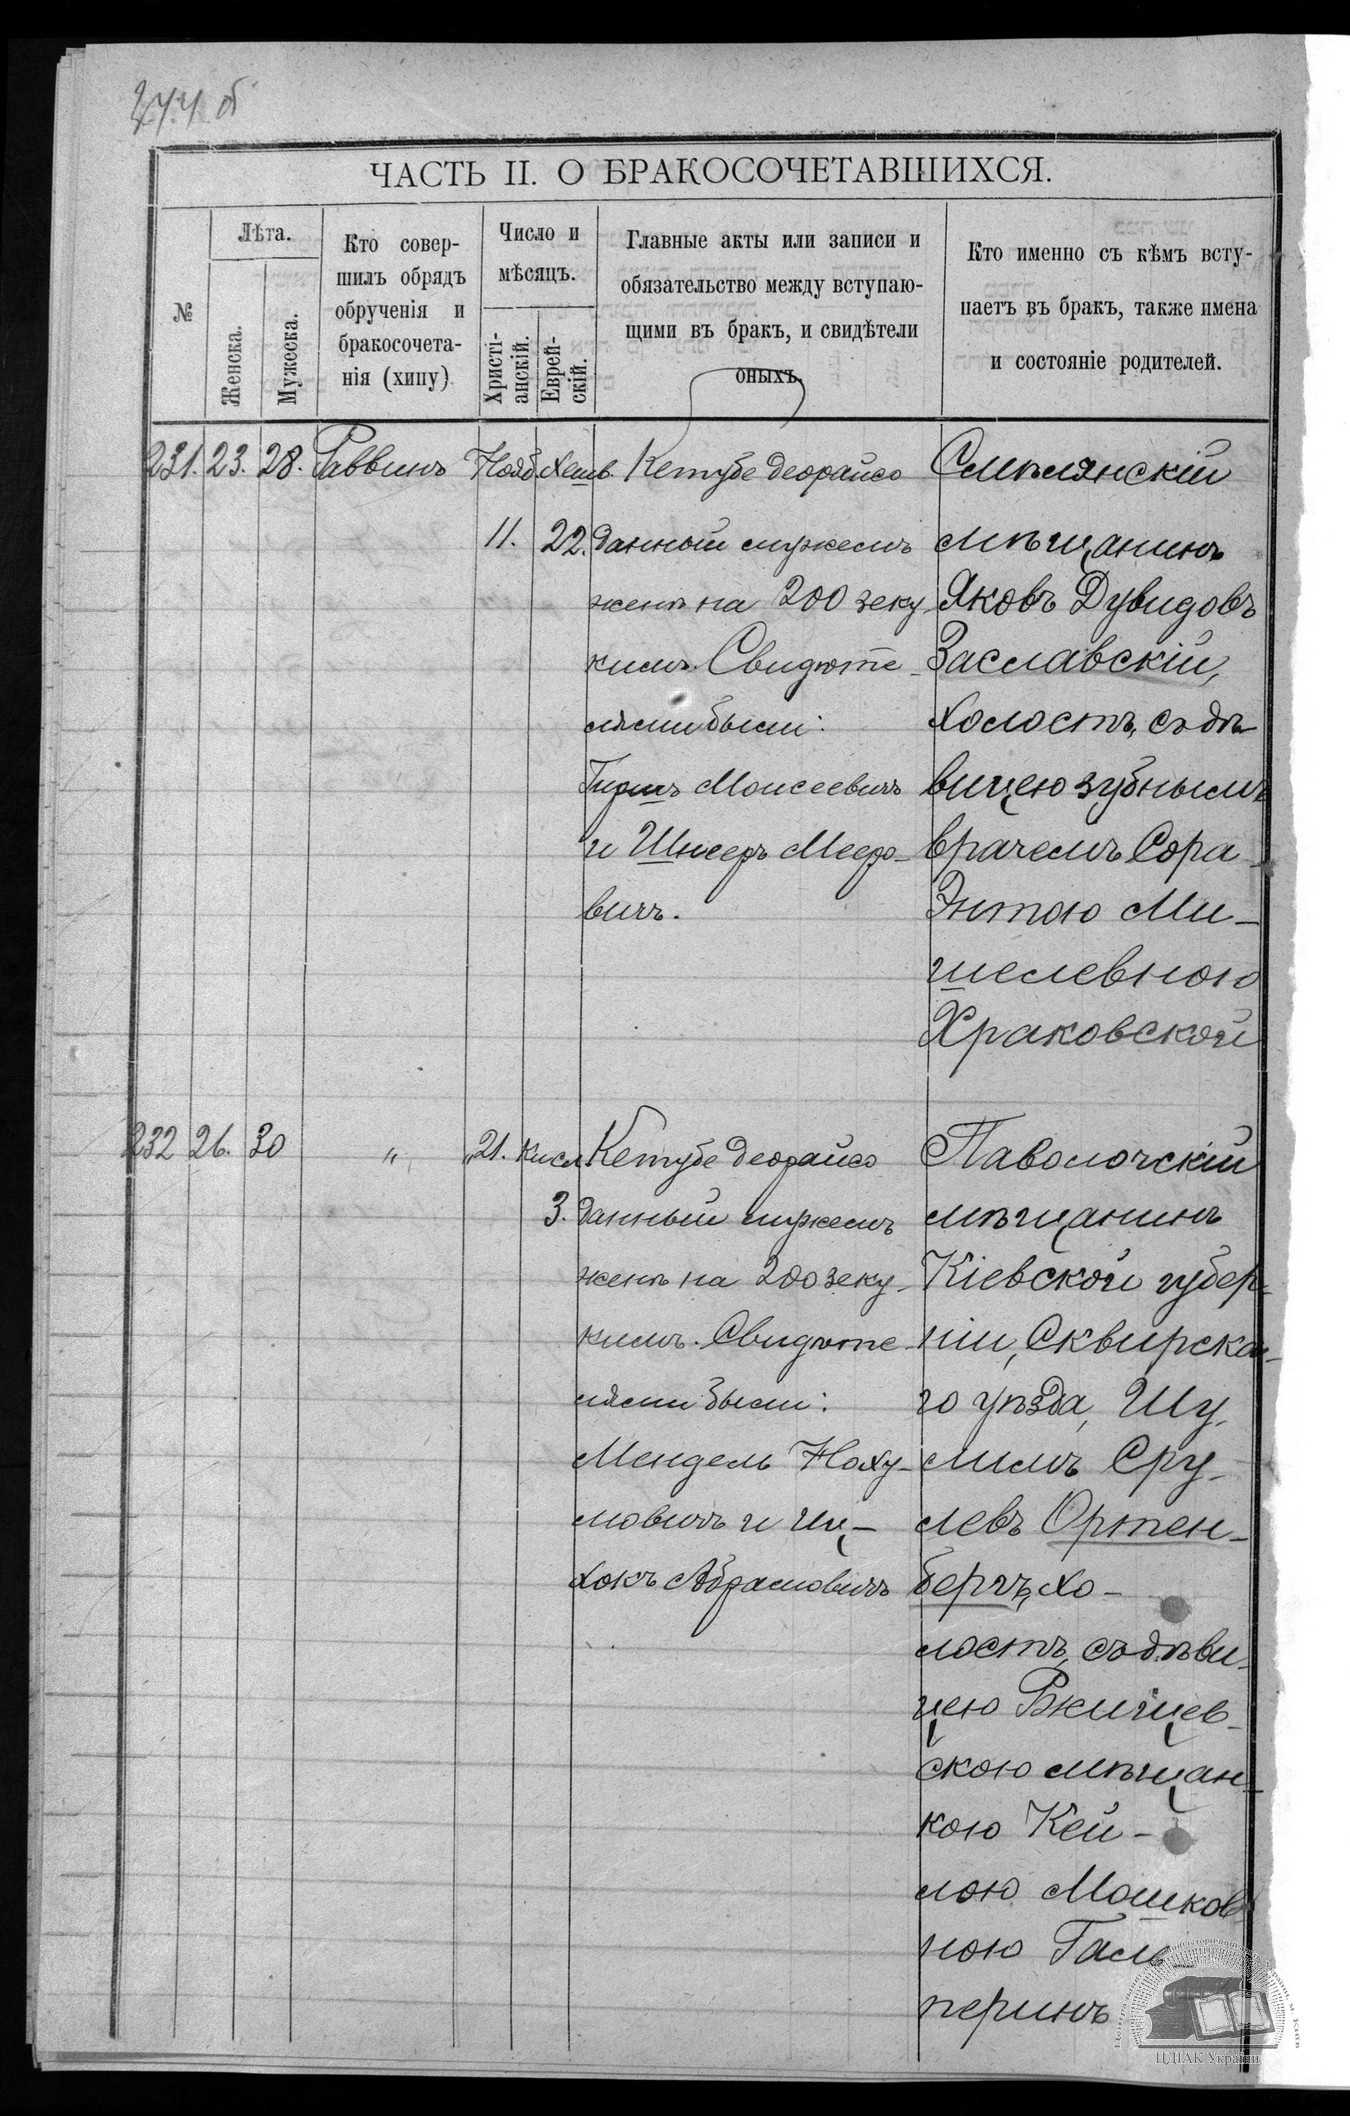 ЧАСТЬ II. О БРАКОСОЧЕТАВШИХСЯ.
№
Лѣта.
Женска.
Мужеска.
Кто совер-
шилъ обрядъ
обрученія и
бракосочета-
нія (хипу)
Число и
мѣсяцъ.
Христі-
анскій.
Еврей-
скій.
Главные акты или записи и
обязательство между вступаю-
щими въ бракъ, и свидѣтели
оныхъ.
Кто именно съ кѣмъ всту-
паетъ въ бракъ, также имена
и состояніе родителей.
231. 23. 28. Раввинъ Нояб. Хешв.
11. 22.
Кетубе деорайсо
данный мужемъ
женѣ на 200 зеку-
кимъ. Свидѣте-
лями были:
Гиршъ Моисеевичъ
и Шнееръ Мееро-
вичъ.
Смѣлянскій
мѣщанинъ
Яковъ Дувидовъ
Заславскій,
холостъ, съ дѣ-
вицею зубнымъ
врачемъ Сора-
Энтою Ми-
шелевною
Храковской
232 26. 30 „ „ 21. Кисл.
3.
Кетубе деорайсо
данный мужемъ
женѣ на 200 зеку-
кимъ. Свидѣте-
лями были:
МендельНоху-
мовичъ и Иц-
хокъ Абрамовичъ
Паволочскій
мѣщанинъ
Кіевской губер-
ніи, Сквирска-
го уѣзда, Шу-
лимъ Сру-
левъ Ортен-
бергъ, хо-
лостъ, съ дѣви-
цею Ржищев-
скою мѣщан-
кою Кей-
лою Мошков-
ною Галь-
перинъ
ЦДІАК України